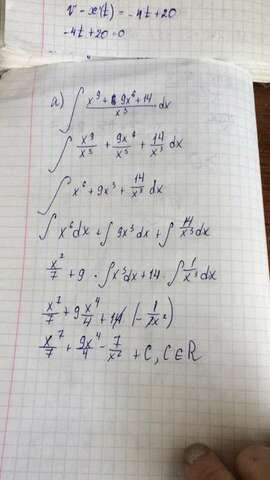 v - x'(t) = -4t + 20
-4t + 20 = 0
a) ∫ (x⁹ + 9x⁶ + 14)/x³ dx
∫ x⁹/x³ + 9x⁶/x³ + 14/x³ dx
∫ x⁶ + 9x³ + 14/x³ dx
∫ x⁶dx + ∫ 9x³dx + ∫ 14/x³ dx
x⁷/7 + 9 · ∫x³dx + 14 · ∫ 1/x³ dx
x⁷/7 + 9 x⁴/4 + 14 (- 1/2x²)
x⁷/7 + 9x⁴/4 - 7/x² + C, C∈R